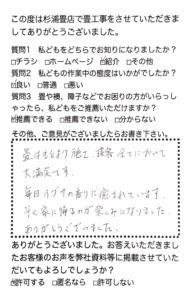 この度は杉浦畳店で畳工事をさせていただきま
してありがとうございました。
質問1 私どもをどちらでお知りになりましたか?
□チラシ □ホームページ ☑紹介 □その他
質問2 私どもの作業中の態度はいかがでしたか?
☑良い □普通 □悪い
質問3 畳や襖、障子などでお困りの方がいらっし
ゃったら、私どもをご推薦いただけますか?
☑推薦できる □推薦できない □分からない
その他、ご意見がございましたらお書き下さい。
畳はもとより施工、接客 全てにおいて
大満足です。
毎日イグサの香りに癒されています。
早く家に帰るのが楽しみになりました。
ありがとうございました。
ありがとうございました。お答えいただきまし
たお客様のお声を弊社資料等に掲載させていた
だいてもよろしいでしょうか?
☑許可する □匿名なら □許可しない